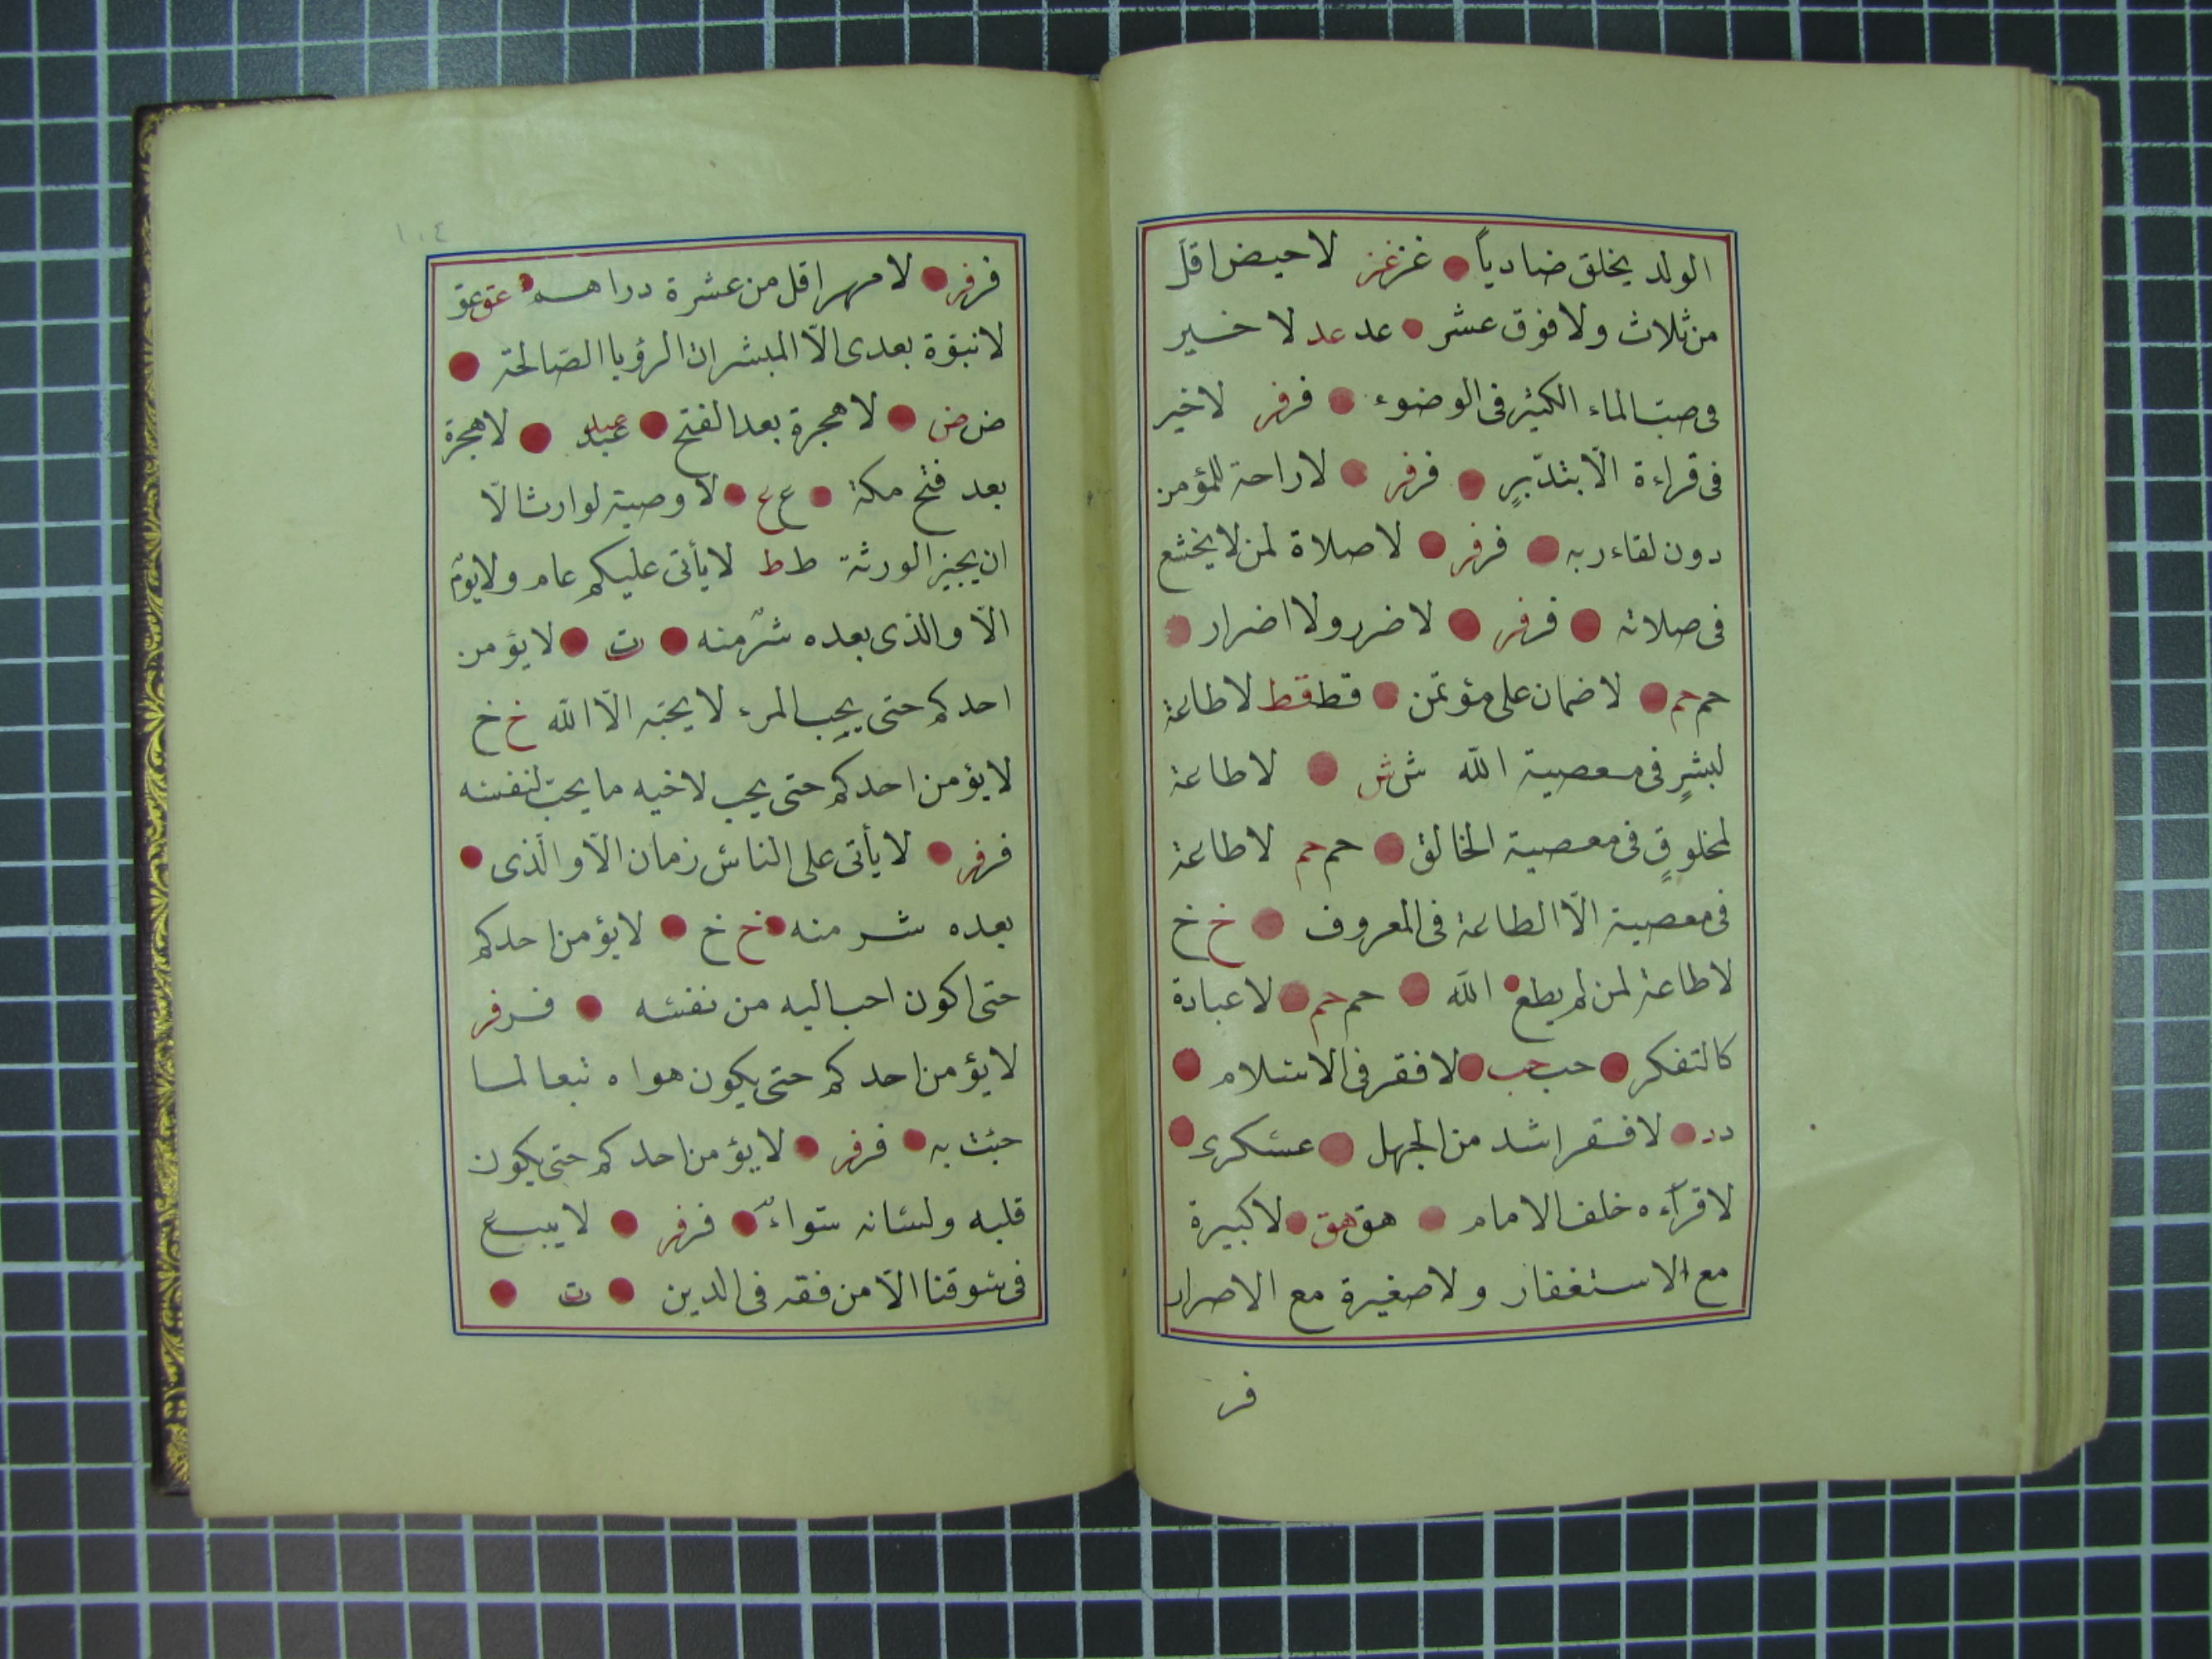 الولد يخلق ضادياً غز غز لا حيض اقل
من ثلاث ولا فوق عشر عد عد لا خير
فى صبّ الماء الكثير فى الوضوء فر فر لا خير
فى قراءة الّا بتدبّرٍ فر فر لا راحة للمؤمن
دون لقاء ربه فر فر لا صلاة لمن لا يخشع
فى صلاته فر فر لا ضرر ولا اضرار
حم حم لا ضمان على مؤتمن قط قط لا طاعة
لبشرٍ فى معصية الله ش ش لا طاعة
لمخلوقٍ فى معصية الخالق حم حم لا طاعة
فى معصية الّا الطاعة فى المعروف خ خ
لا طاعة لمن لم يطع الله حم حم لا عبادة
كالتفكر حب حب لا فقر فى الاسلام
د د لا فقر اشد من الجهل عسكرى
لا قرآءه خلف الامام هق هق لا كبيرة
مع الاستغفار ولا صغيرة مع الاصرار
فر
١٠٤
فر فر لا مهر اقل من عشرة دراهم عق عق
لا نبوّة بعدى الّا المبشرات الرؤيا الصّالحة
ض ض لا هجرة بعد الفتح عبد عبد لا هجرة
بعد فتح مكة ع ع لا وصية لوارث الّا
ان يجيز الورثة ط ط لا يأتى عليكم عام ولا يوم
الّا والذى بعده شرّ منه ت لا يؤمن
احدكم حتى يحب المرء لا يحبّه الّا الله خ خ
لا يؤمن احدكم حتى يحب لاخيه ما يحبّ لنفسه
فر فر لا يأتى على الناس زمان الّا والّذى
بعده شر منه خ خ لا يؤمن احدكم
حتى اكون احب اليه من نفسه فر فر
لا يؤمن احدكم حتى يكون هواه تبعا لما
جئت به فر فر لا يؤمن احدكم حتى يكون
قلبه ولسانه سواءٌ فر فر لا يبع
فى سوقنا الّا من فقه فى الدين ت